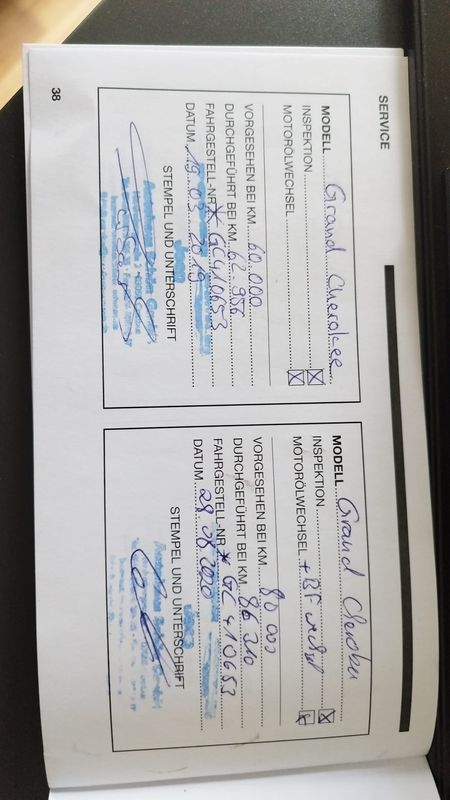 SERVICE
MODELL Grand Cherokee
INSPEKTION ☒
MOTORÖLWECHSEL ☒
VORGESEHEN BEI KM 60.000
DURCHGEFÜHRT BEI KM 62 986
FAHRGESTELL-NR * GC410653
DATUM 19.03.2019
STEMPEL UND UNTERSCHRIFT
MODELL Grand Cherokee
INSPEKTION ☒
MOTORÖLWECHSEL + BF ☒
VORGESEHEN BEI KM 80 000
DURCHGEFÜHRT BEI KM 86 310
FAHRGESTELL-NR * GC410653
DATUM 28 08 2020
STEMPEL UND UNTERSCHRIFT
38